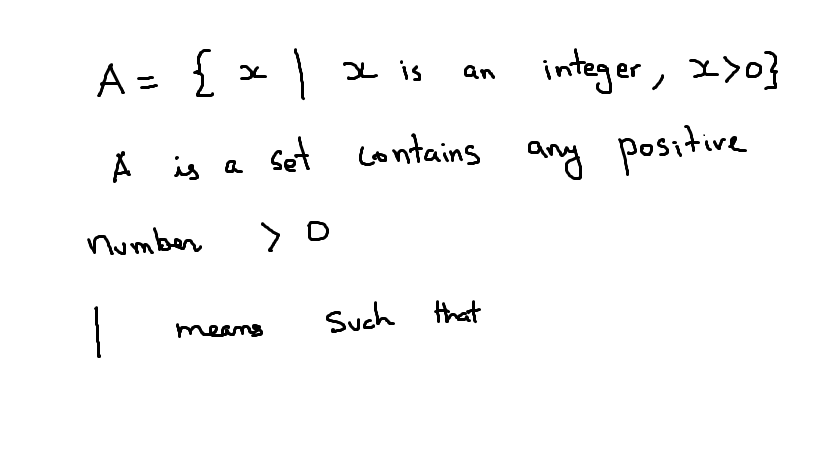 A = { x | x is an integer, x>0}
A is a set contains any positive
number > 0
| means such that